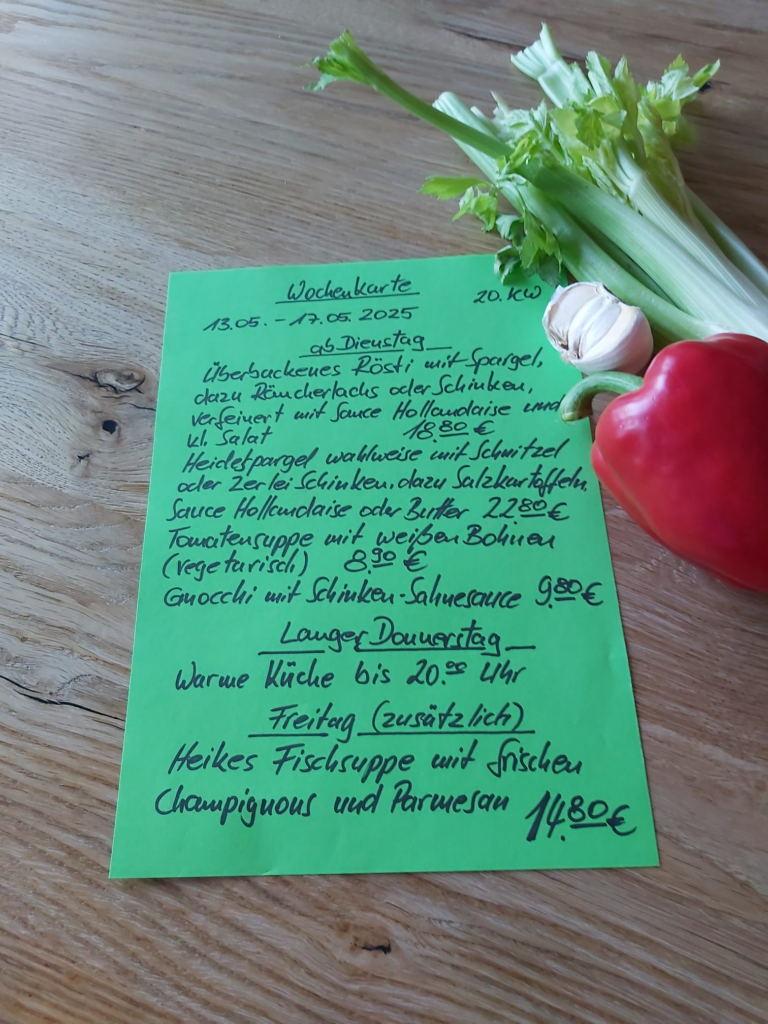 Wochenkarte
20. KW
13.05. - 17.05. 2025
ab Dienstag
Überbackenes Rösti mit Spargel,
dazu Räucherlachs oder Schinken,
verfeinert mit Sauce Hollandaise und
kl. Salat 18.80 €
Heidespargel wahlweise mit Schnitzel
oder Zerlei Schinken, dazu Salzkartoffeln,
Sauce Hollandaise oder Butter 22.80 €
Tomatensuppe mit weißen Bohnen
(vegetarisch) 8.90 €
Gnocchi mit Schinken-Sahnesauce 9.80 €
Langer Donnerstag
Warme Küche bis 20.00 Uhr
Freitag (zusätzlich)
Heikes Fischsuppe mit frischen
Champignons und Parmesan 14.80 €